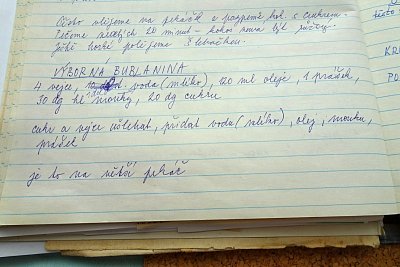 Těsto vlijeme na pekáček a posypeme kok. s cukrem.
Pečeme necelých 20 minut - kokos nesmí být růžový.
Ještě horké polijeme šlehačkou.
VÝBORNÁ BUBLANINA
4 vejce, voda (mléko), 120 ml oleje, 1 prášek,
30 dg hl. mouky, 20 dg cukru
cukr a vejce ušlehat, přidat vodu (mléko), olej, mouku,
prášek
je to na větší pekáč
těsto
KR
PO